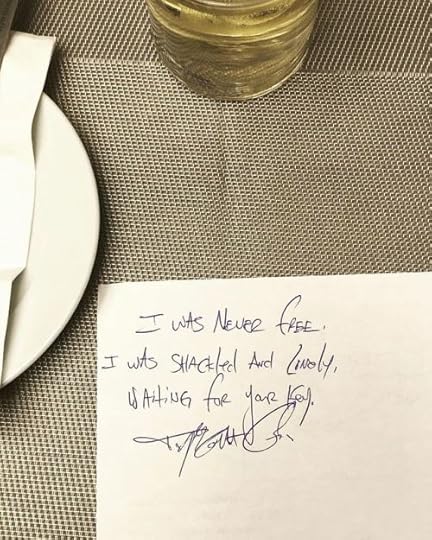 I WAS NEVER fREE.
I WAS SHACkled AND LONely,
WAITING foR YouR Key.